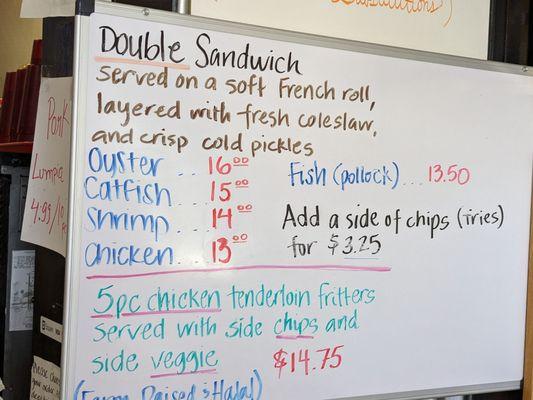 Substitutions)
Double Sandwich
served on a soft French roll,
layered with fresh coleslaw,
and crisp cold pickles
Oyster ... 16⁰⁰
Catfish ... 15⁰⁰
Shrimp ... 14⁰⁰
Chicken ... 13⁰⁰
Fish (pollock) ... 13.50
Add a side of chips (fries)
for $3.25
5pc chicken tenderloin fritters
served with side chips and
side veggie $14.75
(Farm Raised & Halal)
Pork
Lumpia
4.99/10